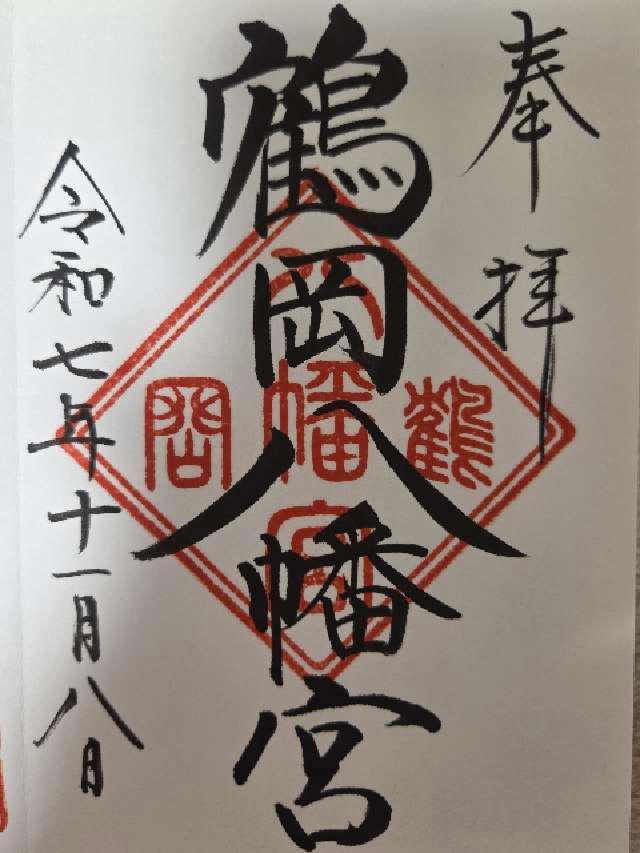 奉拝
鶴岡八幡宮
令和七年十一月八日
鶴岡
八幡宮